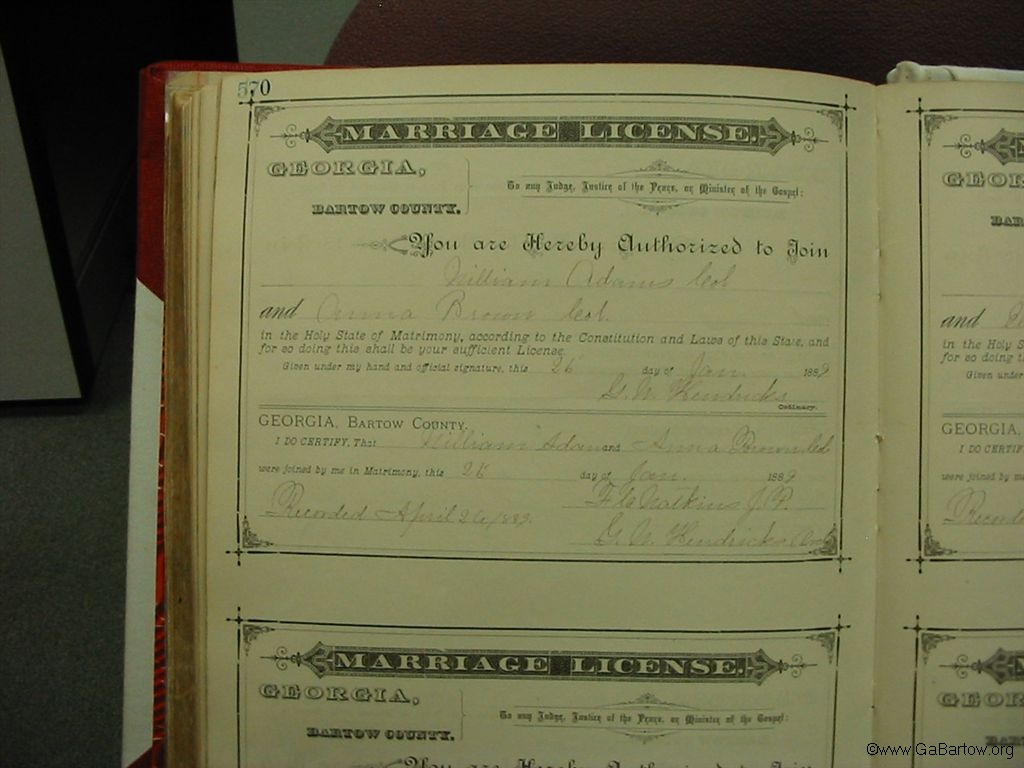 570
MARRIAGE LICENSE.
GEORGIA,
BARTOW COUNTY.
To any Judge, Justice of the Peace, or Minister of the Gospel:
You are Hereby Authorized to Join
William Adams Col
and Anna Brown Col.
in the Holy State of Matrimony, according to the Constitution and Laws of this State, and
for so doing this shall be your sufficient License.
Given under my hand and official signature, this 26 day of Jan. 1889
G. W. Hendricks
Ordinary.
GEORGIA, BARTOW COUNTY.
I DO CERTIFY, That William Adams and Anna Brown Col
were joined by me in Matrimony, this day of Jan. 1889
Watkins J. P.
Recorded April 1889.
G. W. Hendricks Ord
MARRIAGE LICENSE.
GEORGIA,
BARTOW COUNTY.
To any Judge, Justice of the Peace, or Minister of the Gospel:
You are Hereby Authorized to Join
GEOR
BAR
and
in the Holy S
for so doing t
Given under
GEORGIA,
I DO CERTIFY
were joined by me
Recorde
GEOR
BAR
©www.GaBartow.org